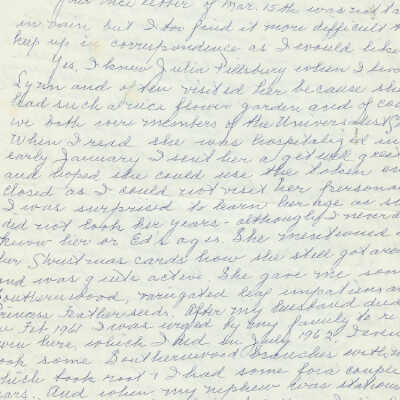 Your nice letter of Mar. 15th was not la
in vain but I too find it more difficult t
keep up in correspondence as I would like
Yes, I knew Julia Pillsbury when I live
Lynn and often visited her because she
had such a nice flower garden and of cou
we both were members of the Universalist
When I read she was hospitalized in
early January I sent her a get well greet
and hoped she could use the token en
closed as I could not visit her persona
I was surprised to learn her age as s
did not look her years - although I never d
knew her or Ed's ages. She mentioned
her Christmas cards how she still got arou
and was quite active. She gave me som
Southernwood, varigated leaf impatiens a
Princess Feather seeds. After my husband died
in Feb 1961 I was urged by my family to re
here, which I did in July 1962. I
took some Southernwood branches with
which took root & I had some for a couple
years. And when my nephew was station